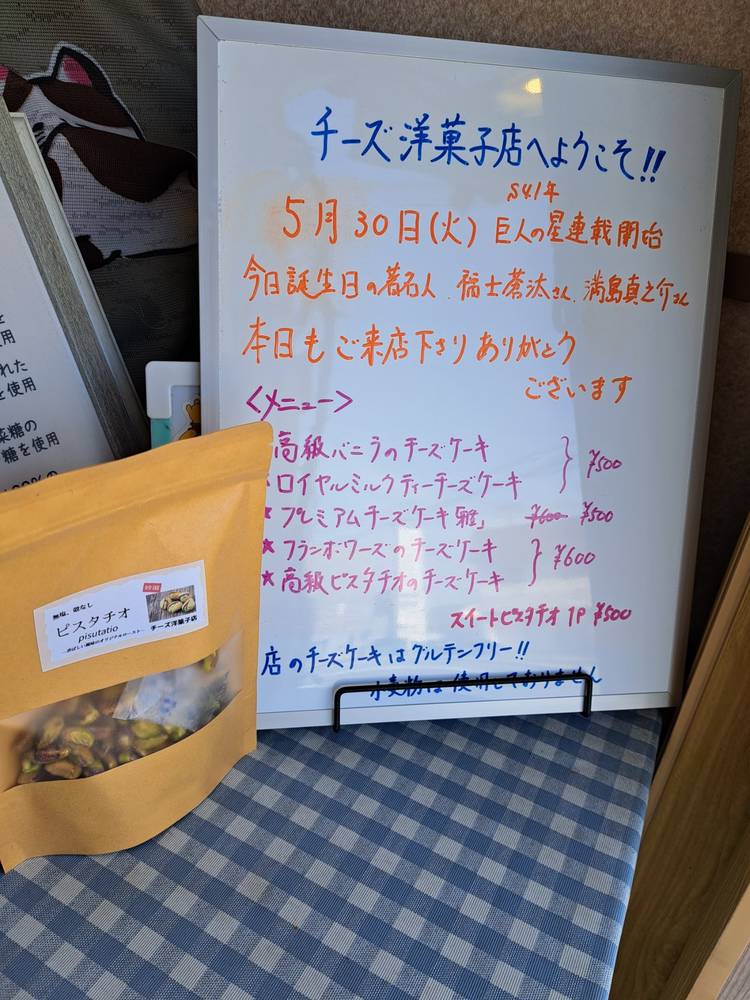 チーズ洋菓子店へようこそ!!
S41年
5月30日(火) 巨人の星連載開始
今日誕生日の著名人 福士蒼汰さん 満島真之介さん
本日もご来店下さりありがとう
ございます
<メニュー>
高級バニラのチーズケーキ
ロイヤルミルクティーチーズケーキ ¥500
★プレミアムチーズケーキ「雅」 ¥600 ¥500
★フランボワーズのチーズケーキ
★高級ピスタチオのチーズケーキ ¥600
スイートピスタチオ 1P ¥500
店のチーズケーキはグルテンフリー!!
小麦粉は使用しておりません
用
れた
を使用
菜糖の
糖を使用
無塩、殻なし
ピスタチオ
pisutatio
チーズ洋菓子店